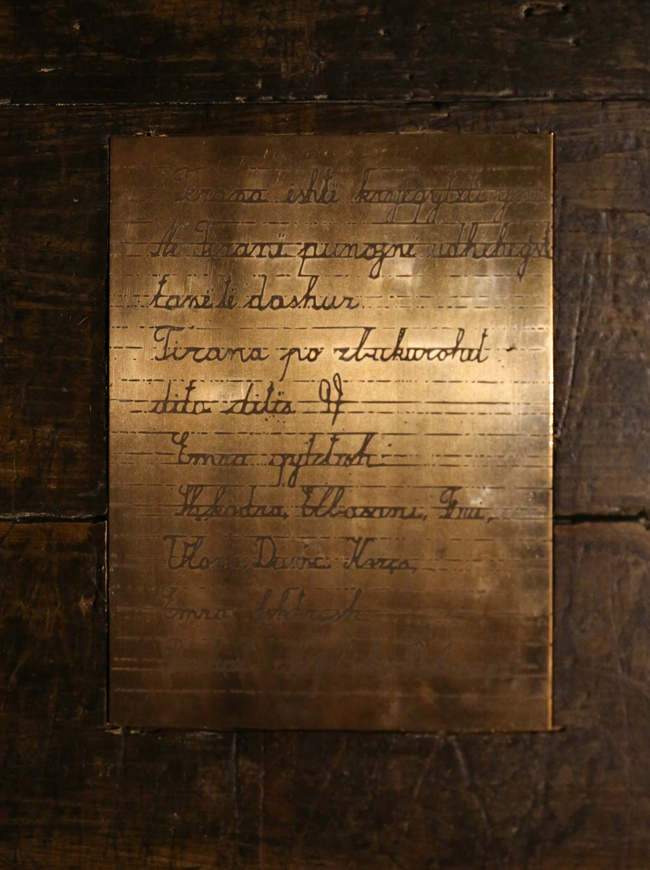 Tirana është kryeqyteti
Në Tiranë punojnë udhëheqsit
tanë të dashur
Tirana po zbukurohet
dita ditës
Emra qytetesh
Shkodra, Elbasani, Fieri,
Vlora, Durrës, Korça,
Emra fshatrash